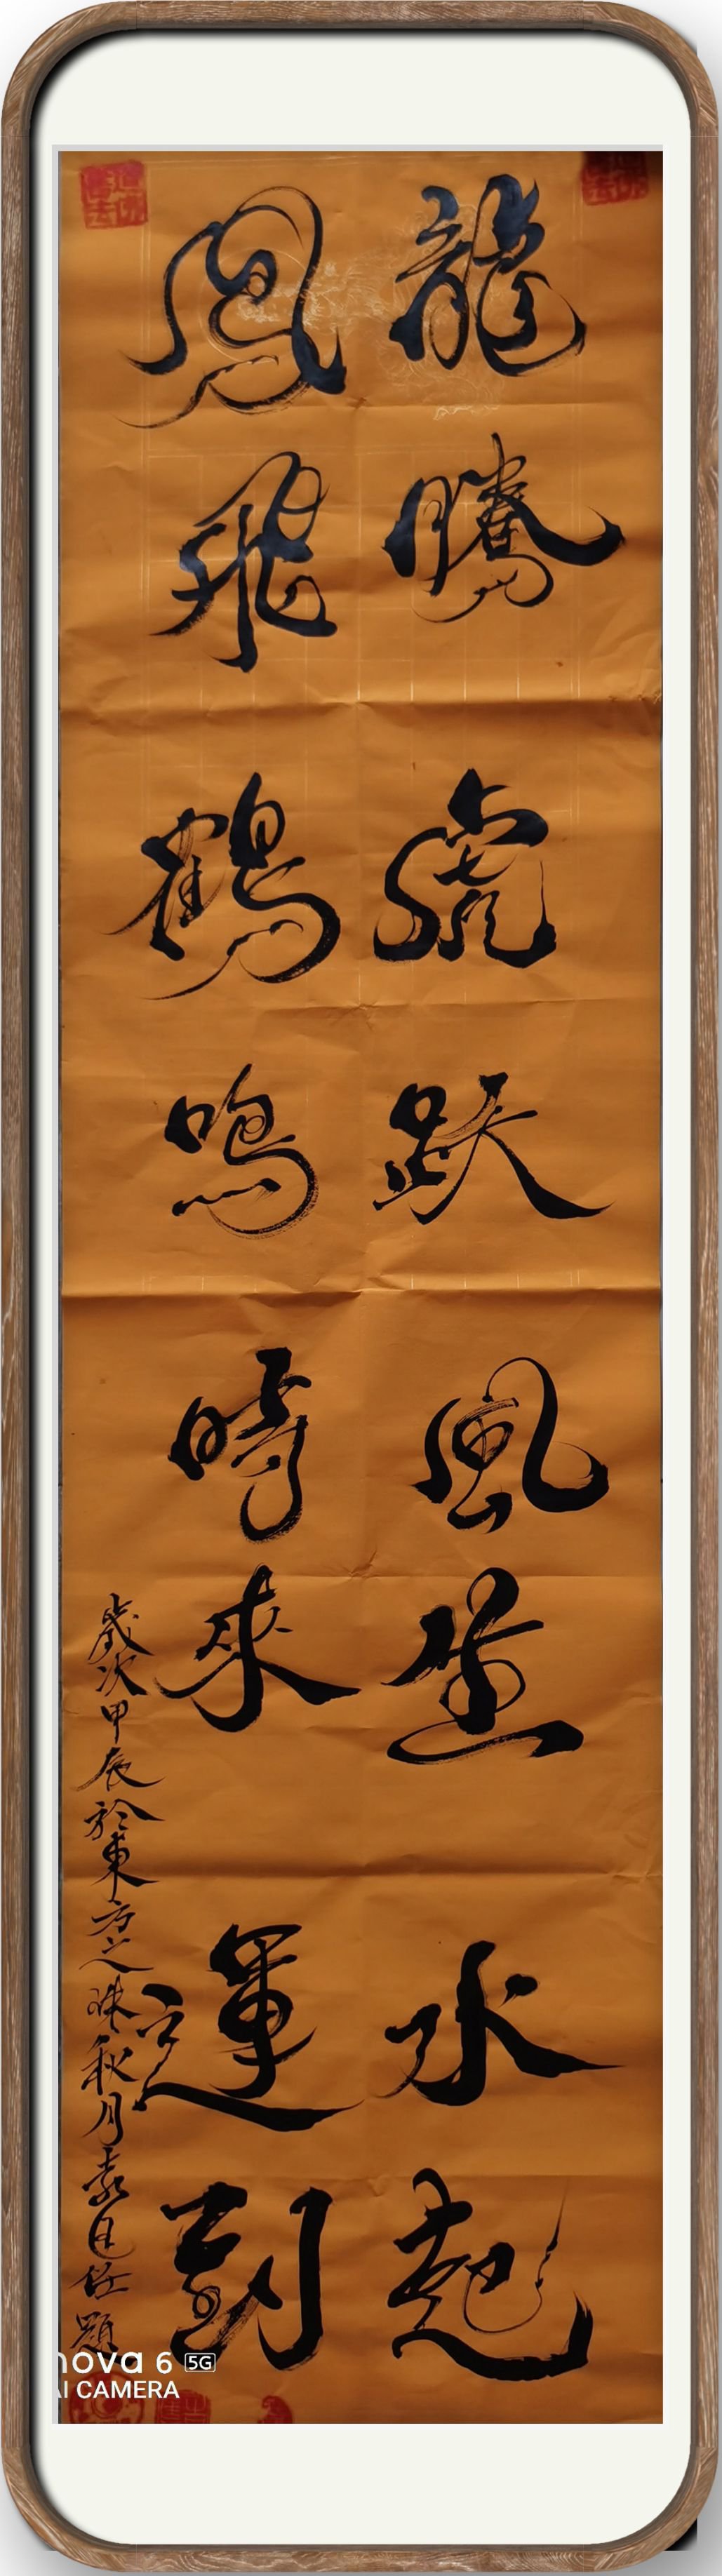 龍騰虎跃風生水起
鳳飛鶴鳴時來運到
歲次甲辰於東方之珠秋月袁旦任題
nova 6 5G
AI CAMERA